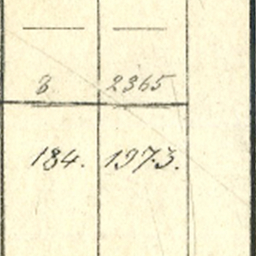 — —
8 2365
184. 1973.